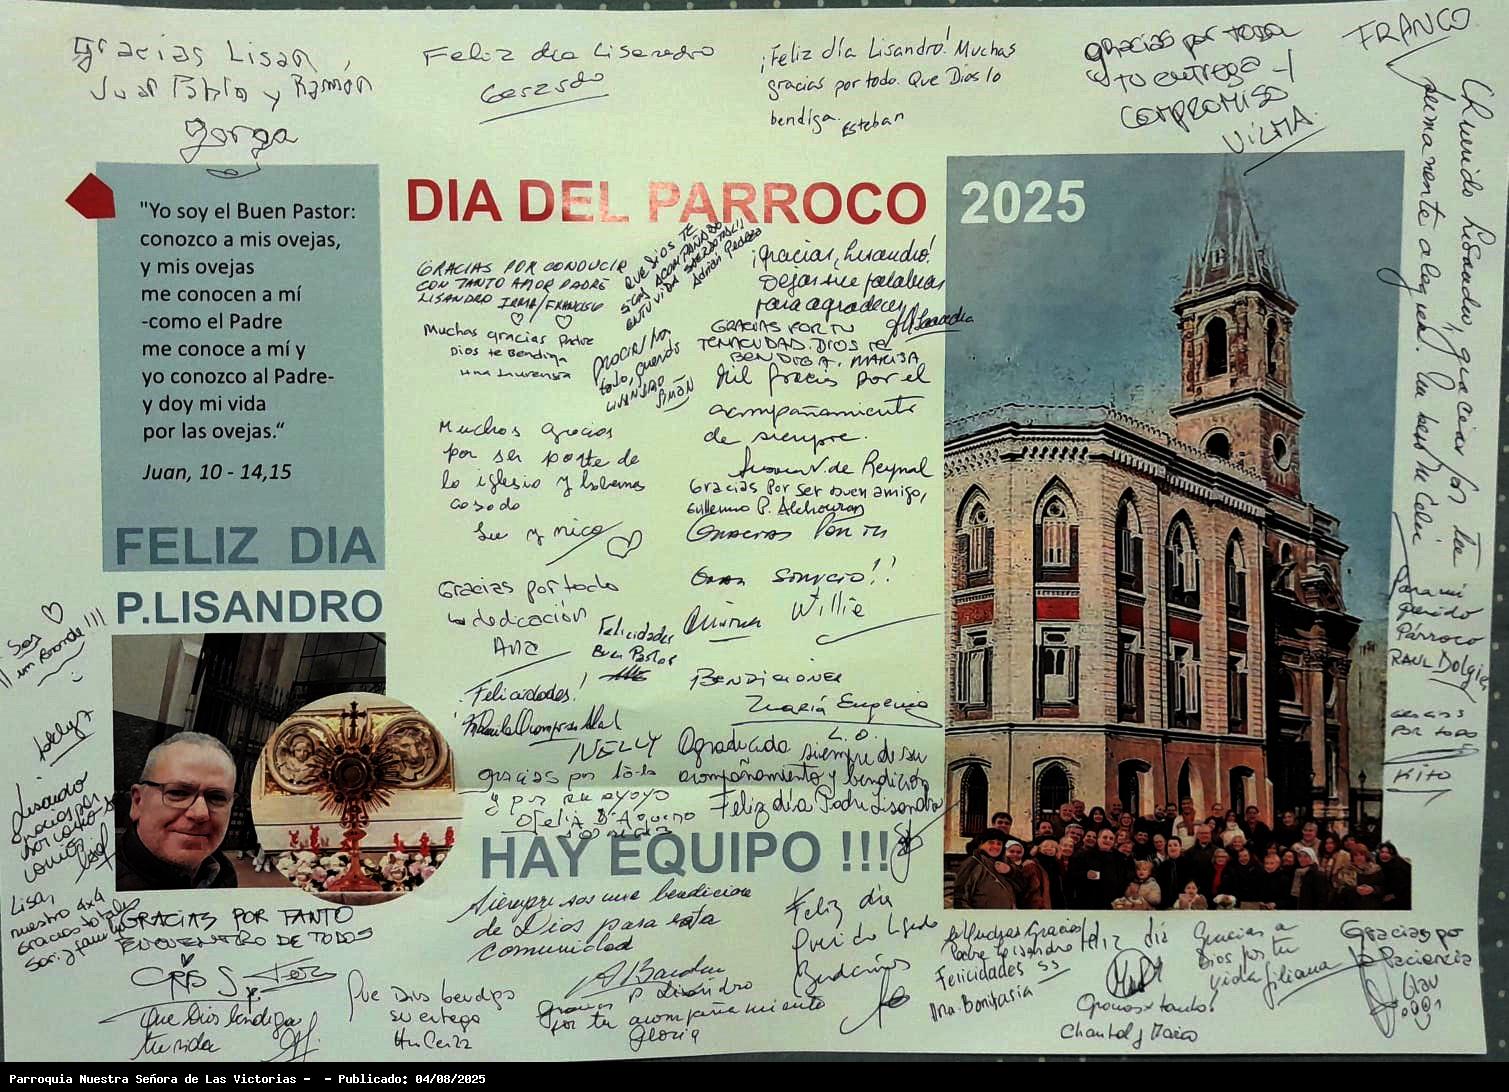 Gracias Lisan,
Juan Pablo y Ramón
Jorge
Feliz día Lisandro
Gerardo
¡Feliz día Lisandro! Muchas
gracias por todo. Que Dios lo
bendiga. Esteban
gracias por toda
tu entrega y
COMPROMISO
VILMA.
FRANCO
DIA DEL PARROCO 2025
"Yo soy el Buen Pastor:
conozco a mis ovejas,
y mis ovejas
me conocen a mí
-como el Padre
me conoce a mí y
yo conozco al Padre-
y doy mi vida
por las ovejas.“
Juan, 10 - 14,15
FELIZ DIA
P.LISANDRO
GRACIAS POR CONDUCIR
CON TANTO AMOR PADRE
LISANDRO IRMA/FRANCISCO
Muchas gracias Padre
Dios te Bendiga
QUE DIOS TE
SIGA ACOMPAÑANDO
EN TU VIDA SACERDOTAL!!
Adrián
¡Gracias, Lisandro!
Dejas sin palabras
para agradecer
GRACIAS POR TU
TENACIDAD. DIOS TE
BENDIGA. MARISA
Gracias por
todo, querido
LISANDRO
Mil gracias por el
acompañamiento
de siempre.
de Reynal
Muchas gracias
por ser parte de
la iglesia y habernos
casado
Lu y Nico
Gracias por ser buen amigo,
Guillermo P.
Gracias por tu
Gran servicio!!
Willie
Gracias por toda
la dedicación
Ana
Felicidades
Buen Pastor
BENDICIONES
María Eugenia
L.O.
¡Felicidades!
NELLY
gracias por
y por su apoyo
Agradecida siempre de su
acompañamiento y bendición
Feliz día Padre Lisandro
Querido Lisandro, gracias por tu
permanente alegría.
Para mi
querido
Párroco
RAUL
Gracias
por todo
Kito
Sos
un grande!!!
Lisandro
gracias por
Lisa,
nuestro 4x4
Gracias totales
HAY EQUIPO !!!
GRACIAS POR TANTO
ENCUENTRO DE TODOS
Que Dios bendiga
tu vida
Que Dios bendiga
su entrega
Siempre sos una bendición
de Dios para esta
comunidad
Gracias P Lisandro
por tu acompañamiento
Gloria
Feliz día
Querido Lisandro
Bendiciones
Muchas Gracias
Padre Lisandro
Felicidades
Feliz día
Gracias x tanto!
Chantal y Marco
Gracias a
Dios por tu
vida Liliana
Gracias por
la Paciencia
Parroquia Nuestra Señora de Las Victorias -  - Publicado: 04/08/2025